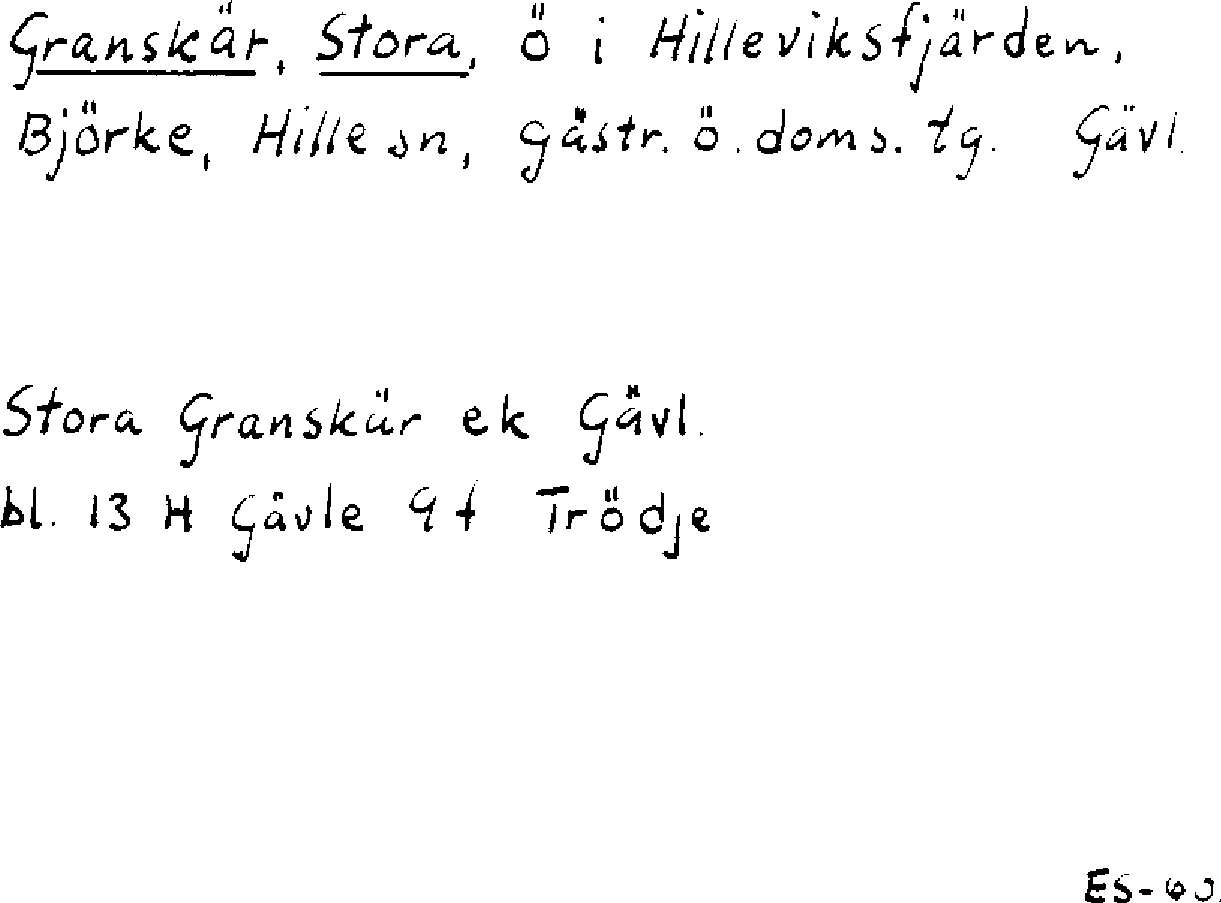 Granskär, Stora, ö i Hilleviksfjärden,
Björke, Hille sn, gästr. ö. doms. tg. Gävl.
Stora Granskär ek Gävl.
bl. 13 H Gävle 9 f Trödje